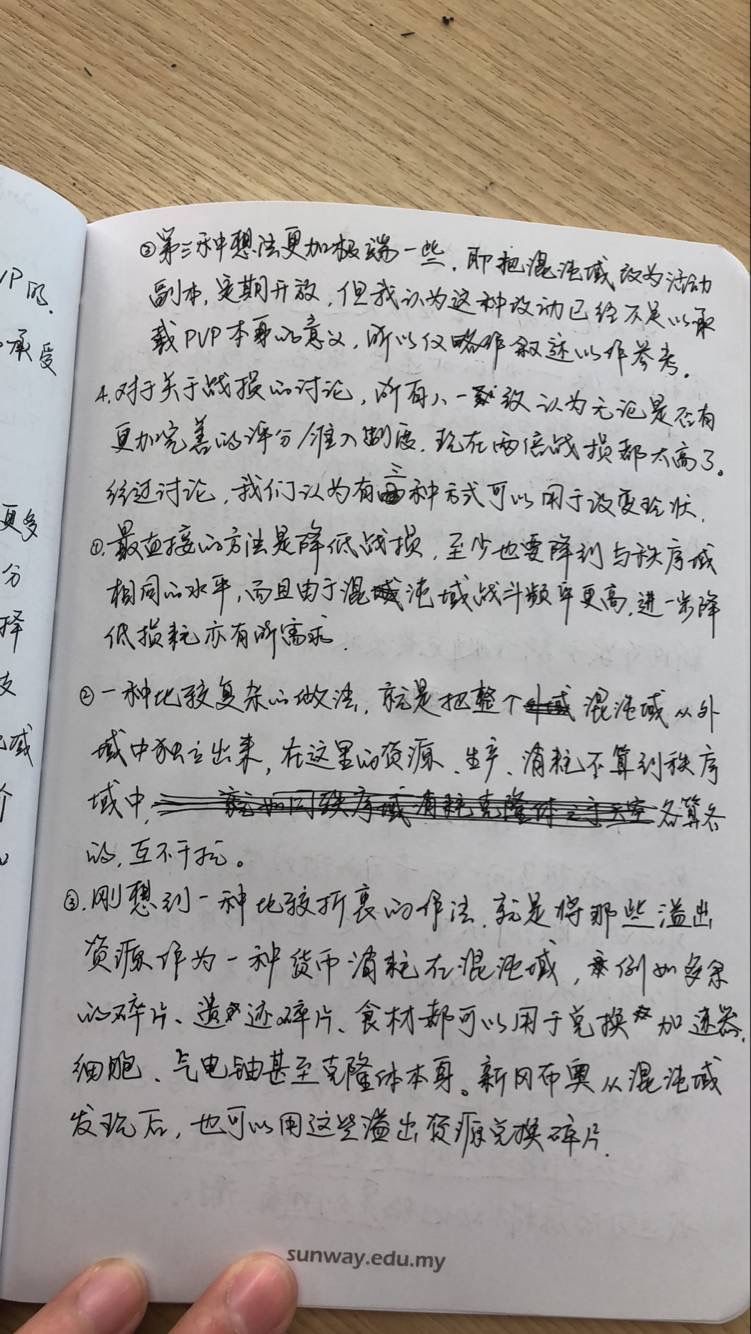 VP的.
承受
更多
分
择
支
域
个
③第三种想法更加极端一些,即把混沌域改为活动
副本,定期开放,但我认为这种改动已经不足以承
载PVP本身的意义,所以仅略作叙述以作参考。
4.对于关于战损的讨论,所有人一致认为无论是否有
更加完善的评分/准入制度,现在两倍战损都太高了。
经过讨论,我们认为有三种方式可以用于改变现状.
①.最直接的方法是降低战损,至少也要降到与秩序域
相同的水平,而且由于混沌域战斗频率更高,进一步降
低损耗亦有所需求.
②一种比较复杂的做法,就是把整个混沌域从外
域中独立出来,在这里的资源、生产、消耗不算到秩序
域中,各算各
的,互不干扰。
③.刚想到一种比较折衷的作法,就是将那些溢出
资源作为一种货币消耗在混沌域,例如多余
的碎片、遗迹碎片、食材都可以用于兑换加速器,
细胞、气电铀甚至克隆体本身。新冈布奥从混沌域
发现后,也可以用这些溢出资源兑换碎片.
sunway.edu.my